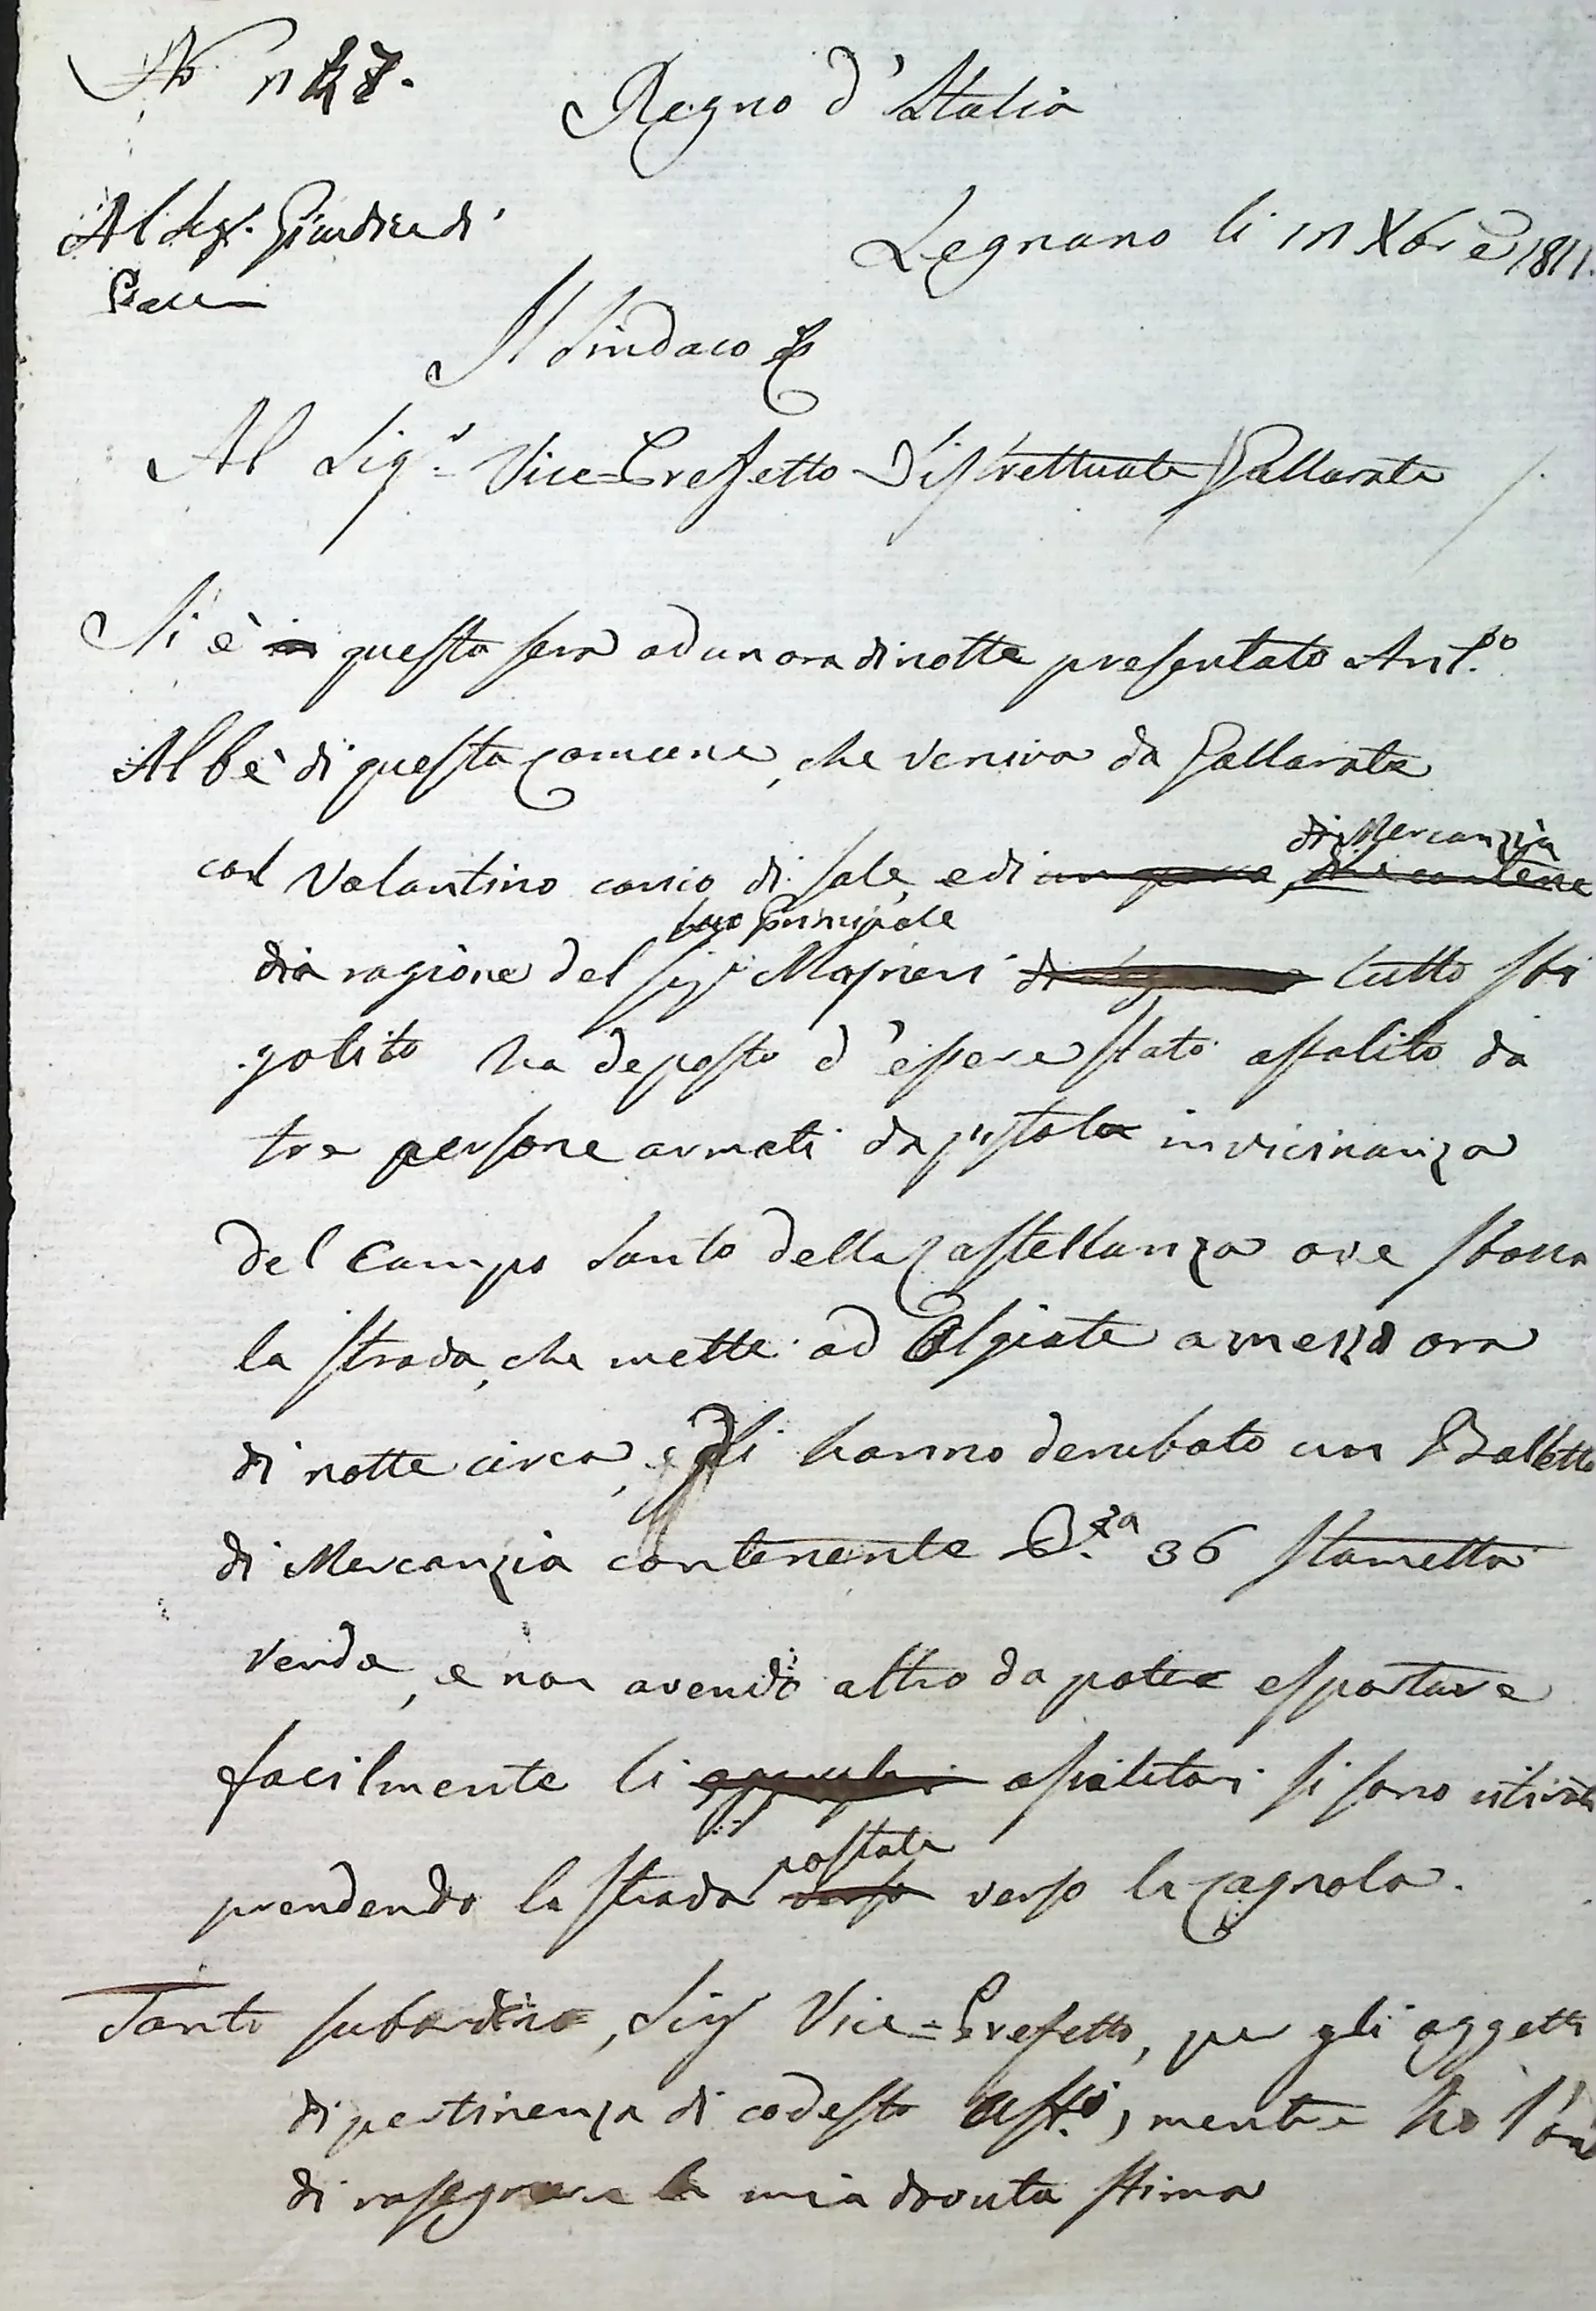 Regno d'Italia
Al Sig.r Giudice di
Legnano li Xbre 1811.
Pace
Il Sindaco
Al Sig.r Vice=Prefetto Distrettuale Gallarate
Si è in questa sera ad un ora di notte presentato Ant.o
Albè di questa Comune, che veniva da Gallarate
di Mercanzia
col Volantino carico di sale, e di un che contene
suo Principale
dia ragione del Sig.r di tutto sbi
gotito ha deposto d'essere stato assalito da
tre persone armati da pistola in vicinanza
del Campo Santo della Castellanza ove sbocca
la strada, che mette ad Olgiate a mezza ora
di notte circa, e gli hanno derubato un Balletto
di Mercanzia contenente 36 stametta
verde, e non avendo altro da poter esportare
facilmente li assalitori si sono ritirati
postale
prendendo la strada verso verso la Cagnola.
Tanto subordino, Sig.r Vice=Prefetto, per gli oggetti
di pertinenza di codesto Uff.o, mentre ho l'on
di rassegnare la mia dovuta stima